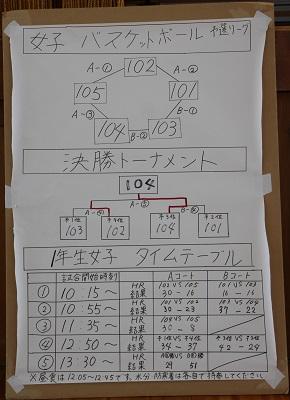 女子 バスケットボール 予選リーグ
102
A-① A-②
105 101
A-③ B-①
104 103
B-②
決勝トーナメント
104
A-⑤
A-④ B-④
予1位 予4位 予3位 予2位
103 102 104 101
1年生女子 タイムテーブル
試合開始時刻 Aコート Bコート
① 10:15〜 HR 102 VS 105 101 VS 103
結果 30 - 16 16 - 16
② 10:55〜 HR 101 VS 102 103 VS 104
結果 30 - 23 37 - 22
③ 11:35〜 HR 104 VS 105
結果 30 - 8
④ 12:50〜 HR 予1位 VS 予4位 予2位 VS 予3位
結果 34 - 37 42 - 24
⑤ 13:30〜 HR
結果 29 51
※昼食は12:05〜12:45です。水分 防寒着は各自で持参してください